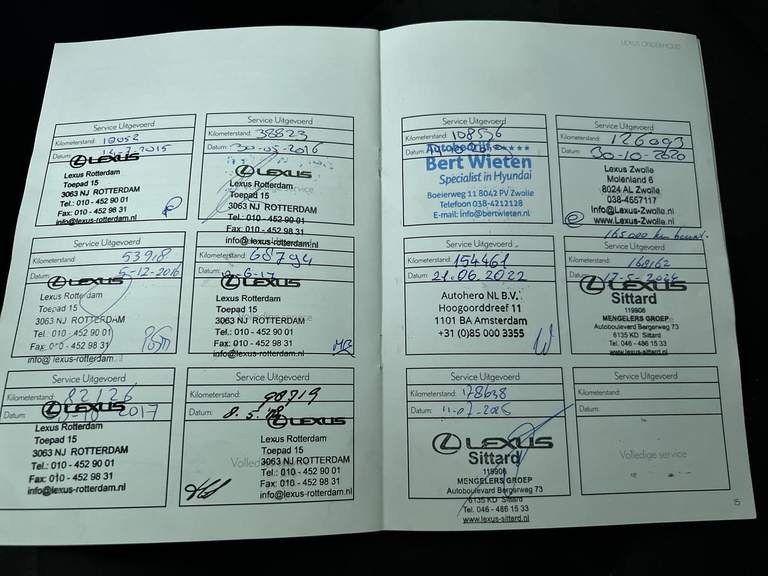 LEXUS ONDERHOUD
Service Uitgevoerd
Kilometerstand: 18052
Datum: 7-2015
LEXUS
Lexus Rotterdam
Toepad 15
3063 NJ ROTTERDAM
Tel.: 010 - 452 90 01
Fax: 010 - 452 98 31
info@lexus-rotterdam.nl
Service Uitgevoerd
Kilometerstand: 38823
Datum: 30-05-2016
LEXUS
Lexus Rotterdam
Toepad 15
3063 NJ ROTTERDAM
Tel.: 010 - 452 90 01
Fax: 010 - 452 98 31
info@lexus-rotterdam.nl
Service Uitgevoerd
Kilometerstand: 53918
Datum: 5-12-2016
LEXUS
Lexus Rotterdam
Toepad 15
3063 NJ ROTTERDAM
Tel.: 010 - 452 90 01
Fax: 010 - 452 98 31
info@lexus-rotterdam.nl
Service Uitgevoerd
Kilometerstand: 68794
Datum: 6-17
LEXUS
Lexus Rotterdam
Toepad 15
3063 NJ ROTTERDAM
Tel.: 010 - 452 90 01
Fax: 010 - 452 98 31
info@lexus-rotterdam.nl
MB
Service Uitgevoerd
Kilometerstand: 82126
Datum: 10 2017
LEXUS
Lexus Rotterdam
Toepad 15
3063 NJ ROTTERDAM
Tel.: 010 - 452 90 01
Fax: 010 - 452 98 31
info@lexus-rotterdam.nl
Service Uitgevoerd
Kilometerstand: 98719
Datum: 8.5.'18
LEXUS
Lexus Rotterdam
Toepad 15
3063 NJ ROTTERDAM
Tel.: 010 - 452 90 01
Fax: 010 - 452 98 31
info@lexus-rotterdam.nl
Service Uitgevoerd
Kilometerstand: 108536
Datum:
Autobedrijf
Bert Wieten
Specialist in Hyundai
Boeierweg 11 8042 PV Zwolle
Telefoon 038-4212128
E-mail: info@bertwieten.nl
Service Uitgevoerd
Kilometerstand: 126093
Datum: 30-10-2020
Lexus Zwolle
Molenland 6
8024 AL Zwolle
038-4557117
Info@Lexus-Zwolle.nl
Www.Lexus-Zwolle.nl
165000 km beurt.
Service Uitgevoerd
Kilometerstand: 154461
Datum: 21.06.2022
Autohero NL B.V.
Hoogoorddreef 11
1101 BA Amsterdam
+31 (0)85 000 3355
Service Uitgevoerd
Kilometerstand: 168162
Datum: 17-5-2024
LEXUS
Sittard
119906
MENGELERS GROEP
Autoboulevard Bergerweg 73
6135 KD Sittard
Tel. 046 - 486 15 33
www.lexus-sittard.nl
Service Uitgevoerd
Kilometerstand: 178638
Datum: 11-07-2025
LEXUS
Sittard
119906
MENGELERS GROEP
Autoboulevard Bergerweg 73
6135 KD Sittard
Tel. 046 - 486 15 33
www.lexus-sittard.nl
Service Uitgevoerd
Kilometerstand:
Datum:
Volledige service
15